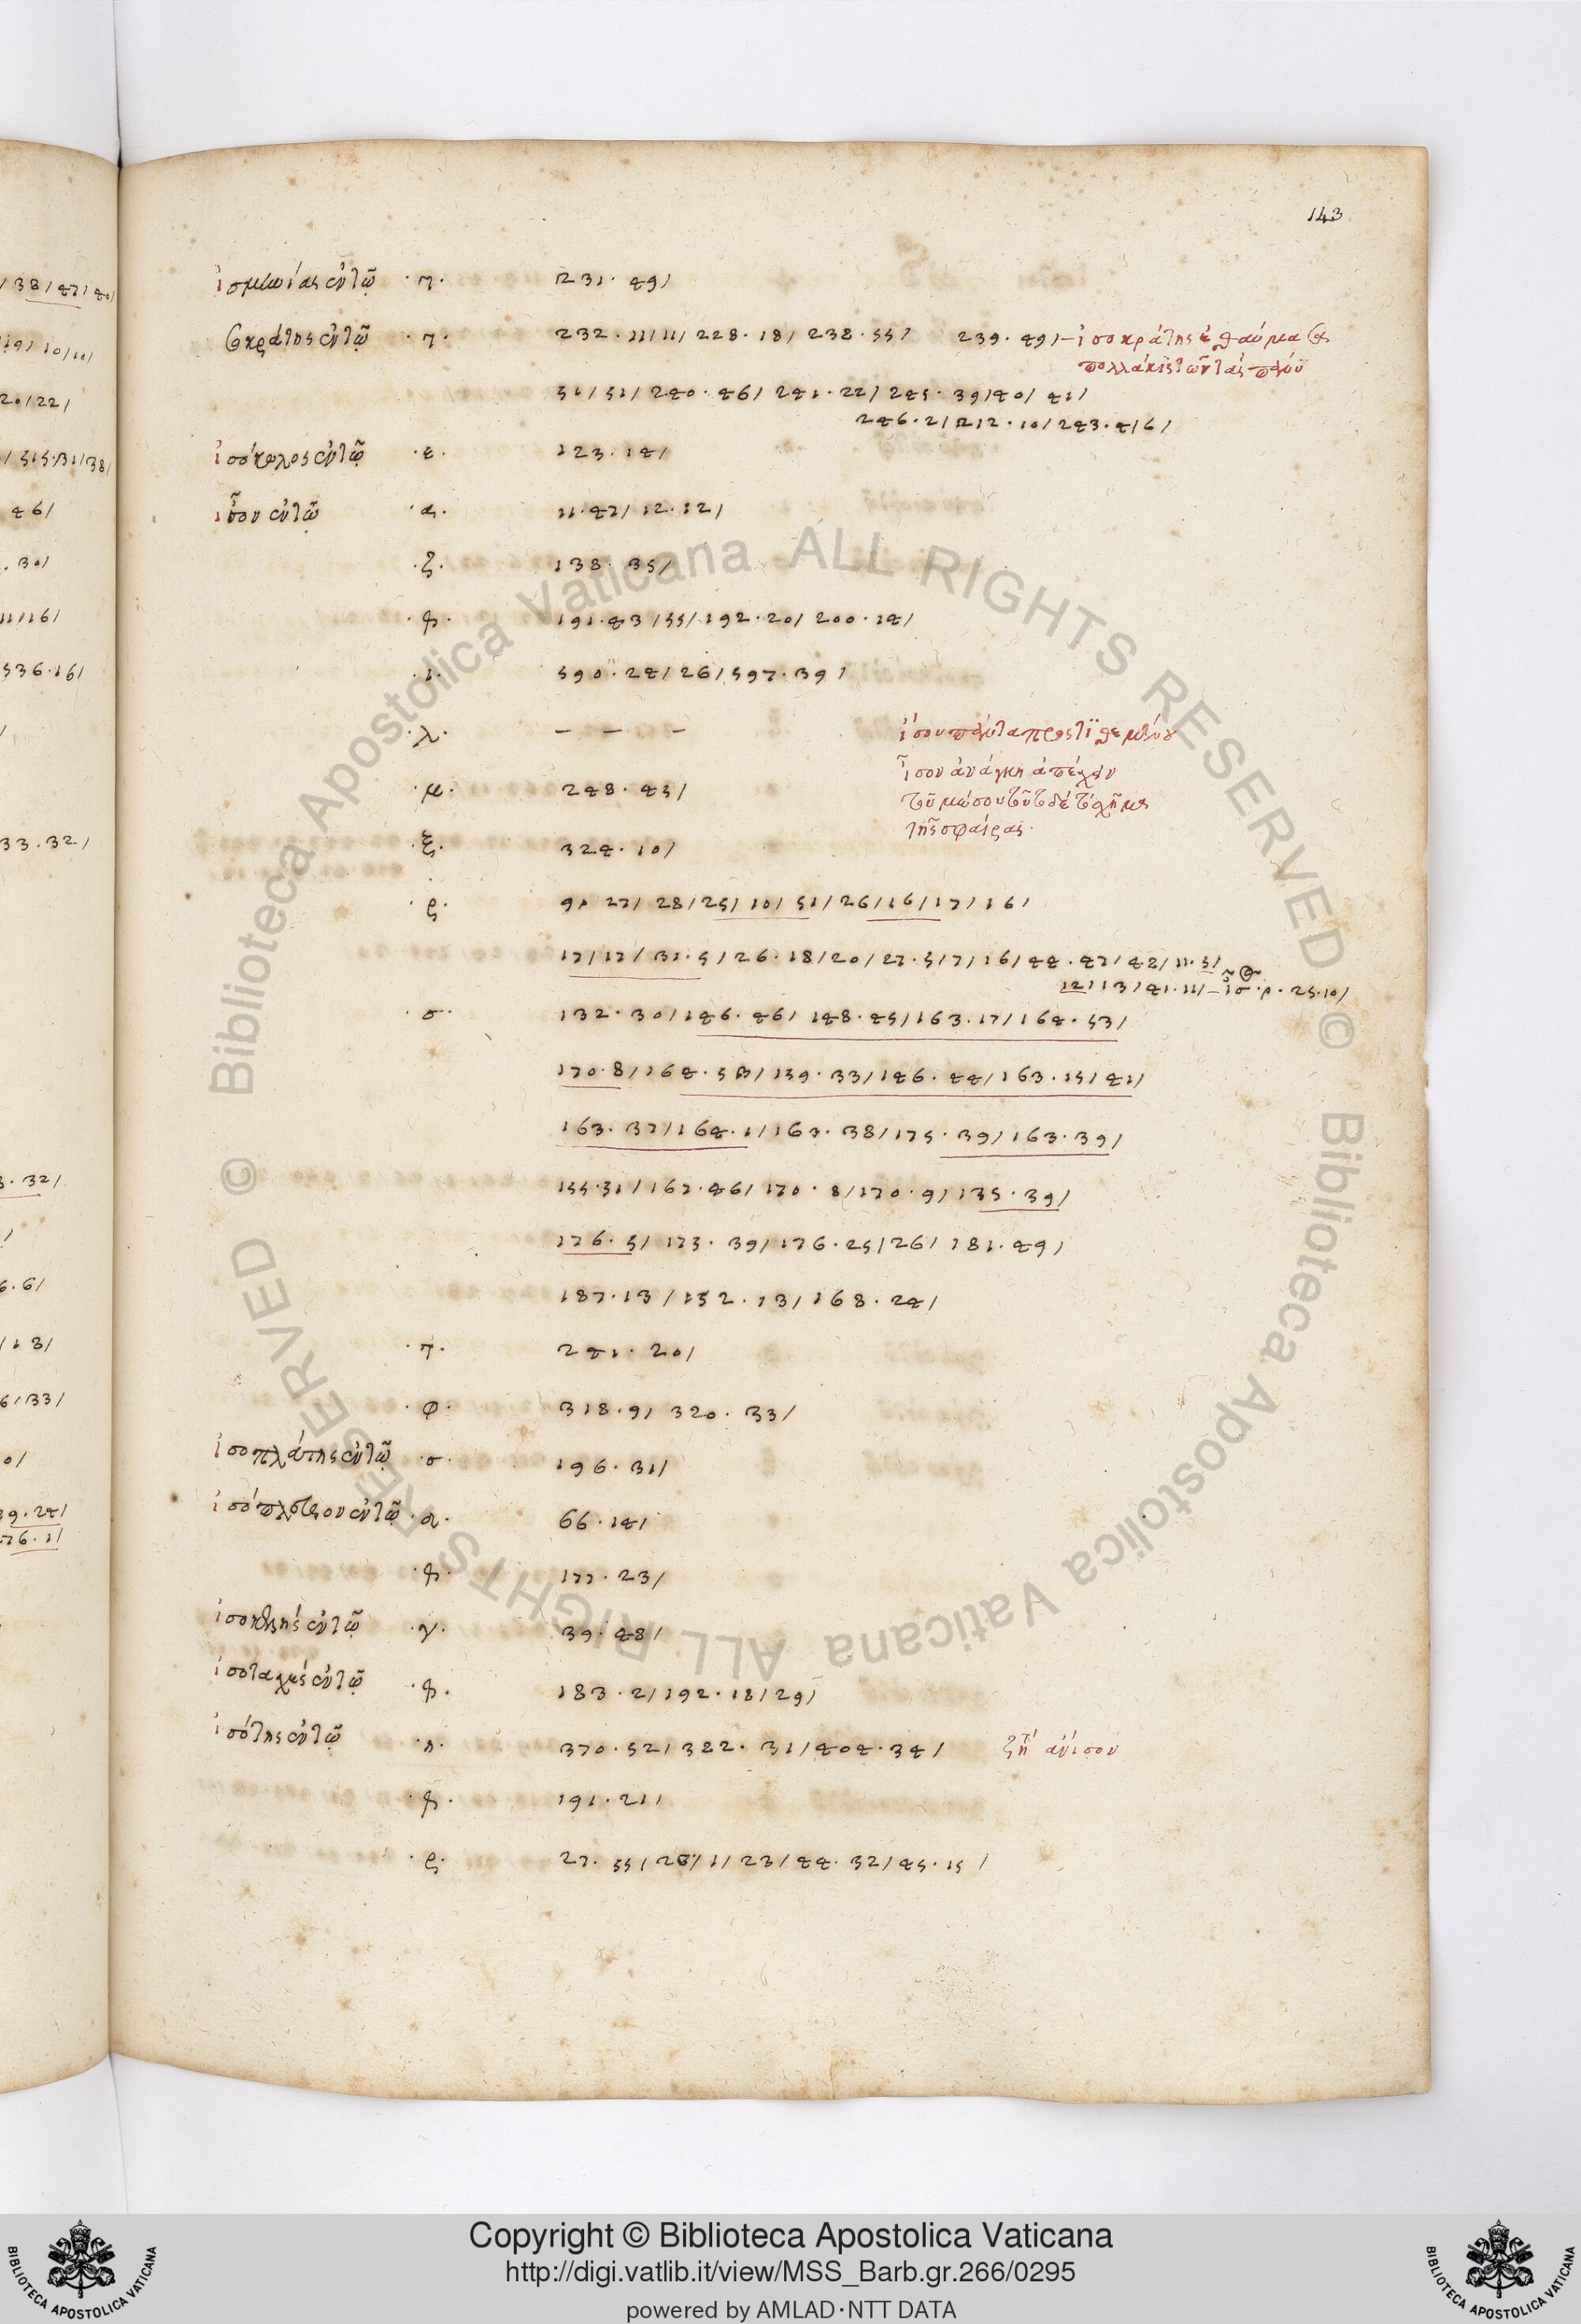 143
ἰσμηνίας ἐν τῷ ·τ· 231·49/
σωκράτης ἐν τῷ ·τ· 232·11/11/228·18/238·55/ 239·49/– ἰσοκράτης ἐθαύμασε
πολλάκις τῶν τὰς παν
51/51/240·46/241·22/245·39/40/41/
246·2/212·10/243·4/6/
ἰσόκωλος ἐν τῷ ·ε· 123·14/
ἴσον ἐν τῷ ·α· 11·47/12·12/
·ζ· 138·35/
·φ· 191·43/55/192·20/200·14/
·ι· 590·24/26/597·39/
·λ· – – – ἴσου παντα προστιθεμένου
ἴσον ἀνάγκη ἀπέχειν
·μ· 248·45/ τοῦ μέσου τοῦτο δὲ τὸ σχῆμα
τῆς σφαίρας·
·ξ· 324·10/
·ρ· 9· 27/28/25/10/51/26/16/17/16/
17/17/31·5/26·18/20/27·5/7/16/44·47/42/11·5/
12/13/41·11/–ἴσ·ρ·25·10/
·σ· 132·30/146·46/148·45/163·17/164·53/
170·8/164·53/159·33/146·44/163·15/41/
163·37/164·1/163·38/175·39/163·39/
155·31/167·46/170·8/170·9/135·39/
176·5/173·39/176·25/26/181·49/
187·13/152·13/168·24/
·τ· 241·20/
·φ· 318·9/320·33/
ἰσοπλάτης ἐν τῷ ·σ· 196·31/
ἰσόπλευρον ἐν τῷ ·α· 66·14/
·φ· 177·23/
ἰσοσκελής ἐν τῷ ·γ· 39·48/
ἰσοταχής ἐν τῷ ·φ· 183·2/192·18/29/
ἰσότης ἐν τῷ ·η· 370·52/382·31/404·34/ ζήτ ἄνισον
·φ· 191·21/
·ρ· 27·55/28/1/23/44·32/45·15/
Copyright © Biblioteca Apostolica Vaticana
http://digi.vatlib.it/view/MSS_Barb.gr.266/0295
powered by AMLAD·NTT DATA
BIBLIOTECA APOSTOLICA VATICANA
BIBLIOTECA APOSTOLICA VATICANA
© Biblioteca Apostolica Vaticana ALL RIGHTS RESERVED © Biblioteca Apostolica Vaticana ALL RIGHTS RESERVED